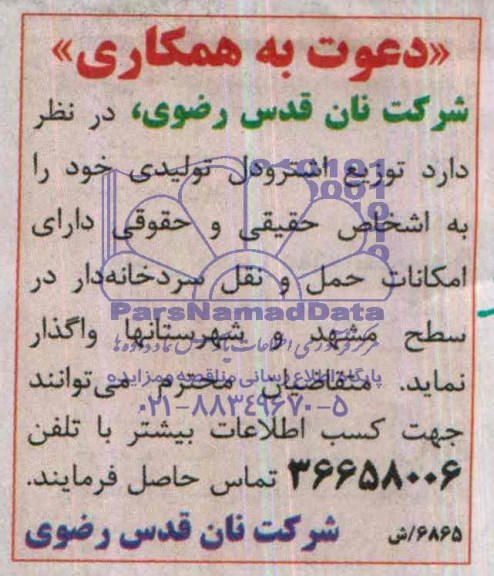 «دعوت به همکاری»
شرکت نان قدس رضوی، در نظر
دارد توزیع اشترودل تولیدی خود را
به اشخاص حقیقی و حقوقی دارای
امکانات حمل و نقل سردخانه‌دار در
ParsNamadData
سطح مشهد و شهرستانها واگذار
پایگاه اطلاع رسانی مناقصه و مزایده
نماید. متقاضیان محترم می‌توانند
۰۲۱-۸۸۳۴۹۶۷۰-۵
جهت کسب اطلاعات بیشتر با تلفن
۳۶۶۵۸۰۰۶ تماس حاصل فرمایند.
۶۸۶۵/ش شرکت نان قدس رضوی